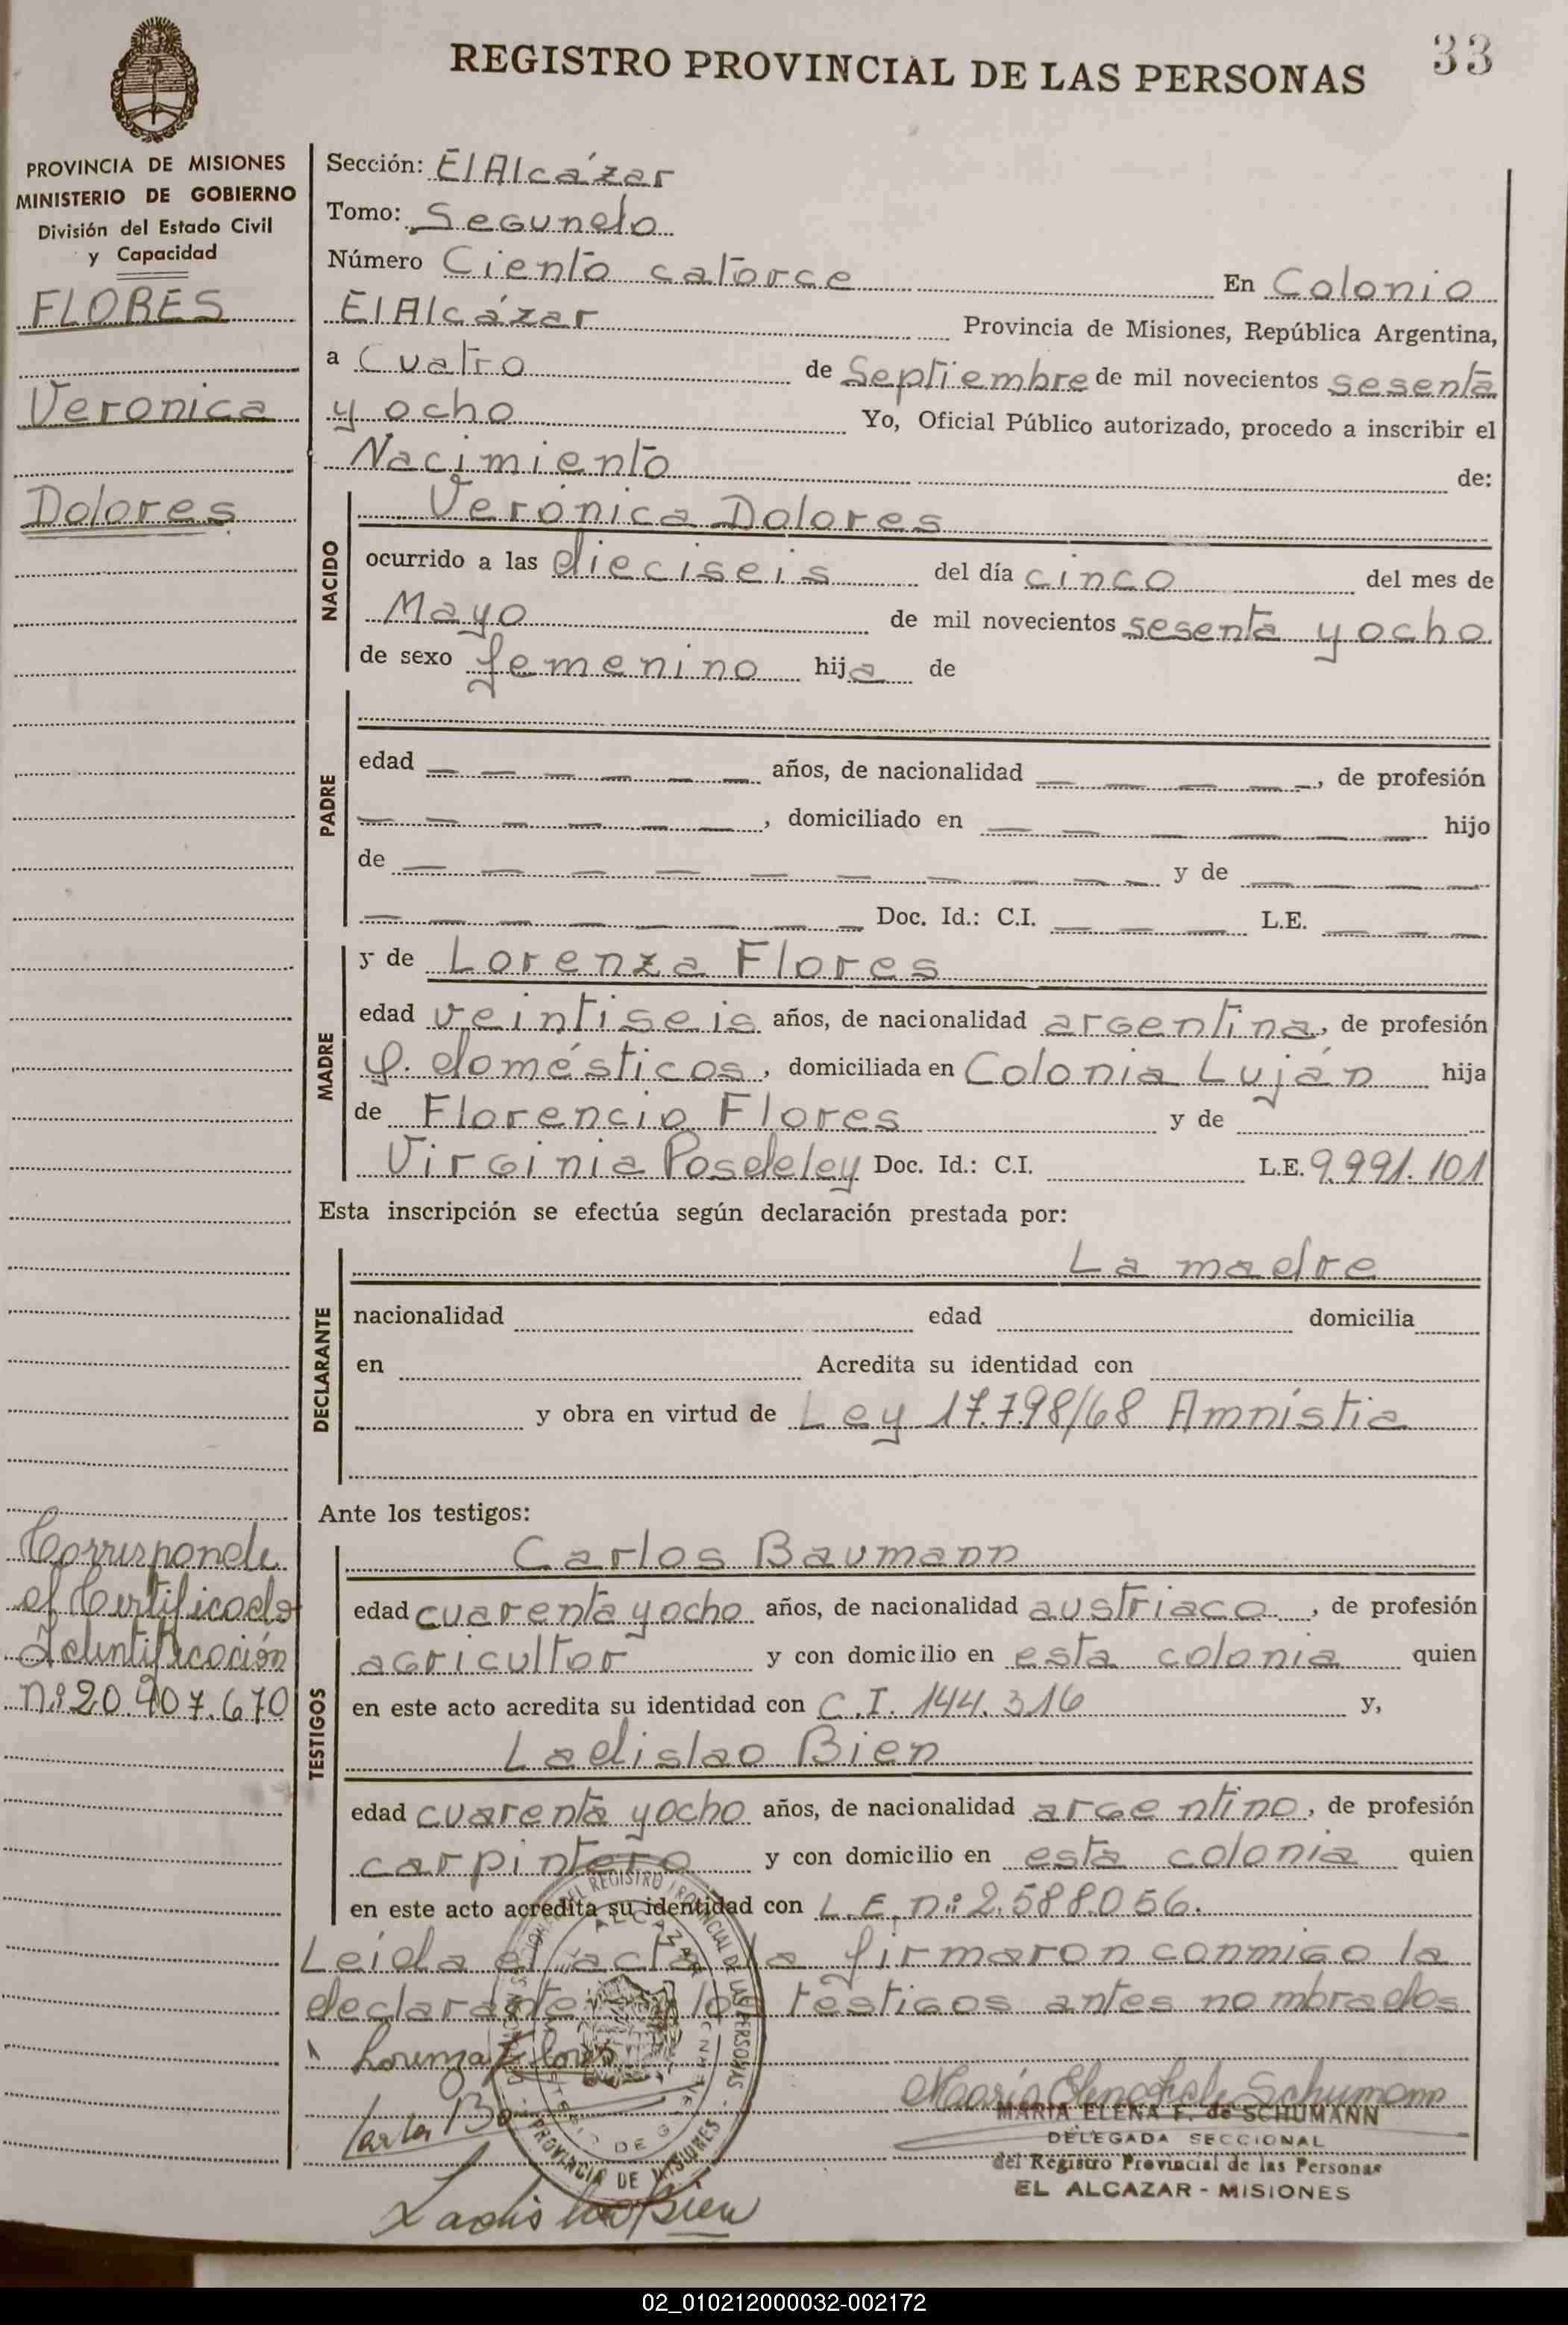 REGISTRO PROVINCIAL DE LAS PERSONAS
33
PROVINCIA DE MISIONES
MINISTERIO DE GOBIERNO
División del Estado Civil
y Capacidad
FLORES
Veronica
Dolores
Corresponde
al Certificado
Identificación
n:º 20.907.670
Sección: El Alcázar
Tomo: Segundo
Número Ciento catorce En Colonia
El Alcázar Provincia de Misiones, República Argentina,
a Cuatro de Septiembre de mil novecientos sesenta
y ocho Yo, Oficial Público autorizado, procedo a inscribir el
Nacimiento de:
NACIDO
Verónica Dolores
ocurrido a las dieciseis del día cinco del mes de
Mayo de mil novecientos sesenta y ocho
de sexo femenino hija de
PADRE
edad — — — — — — años, de nacionalidad — — — — —, de profesión
— — — — — —, domiciliado en — — — — — — hijo
de — — — — — — — — — — y de — — — —
— — — — — — — Doc. Id.: C.I. — — — L.E. — — —
MADRE
y de Lorenza Flores
edad veintiseis años, de nacionalidad argentina, de profesión
q. domésticos, domiciliada en Colonia Luján hija
de Florencio Flores y de
Virginia Posdeley Doc. Id.: C.I. L.E. 9.991.101
Esta inscripción se efectúa según declaración prestada por:
DECLARANTE
La madre
nacionalidad edad domicilia
en Acredita su identidad con
y obra en virtud de Ley 17.798/68 Amnístia
Ante los testigos:
TESTIGOS
Carlos Baumann
edad cuarenta y ocho años, de nacionalidad austriaco, de profesión
agricultor y con domicilio en esta colonia quien
en este acto acredita su identidad con C.I. 144.316 y,
Ladislao Bien
edad cuarenta y ocho años, de nacionalidad argentino, de profesión
carpintero y con domicilio en esta colonia quien
en este acto acredita su identidad con L.E. n:º 2.588.056.
Leida el acta la firmaron conmigo la
declarante y los testigos antes nombrados
Lorenza Flores
Ladislao Bien
MARIA ELENA F. de SCHUMANN
DELEGADA SECCIONAL
del Registro Provincial de las Personas
EL ALCAZAR - MISIONES
ALCAZAR
PROVINCIA DE MISIONES
02_010212000032-002172